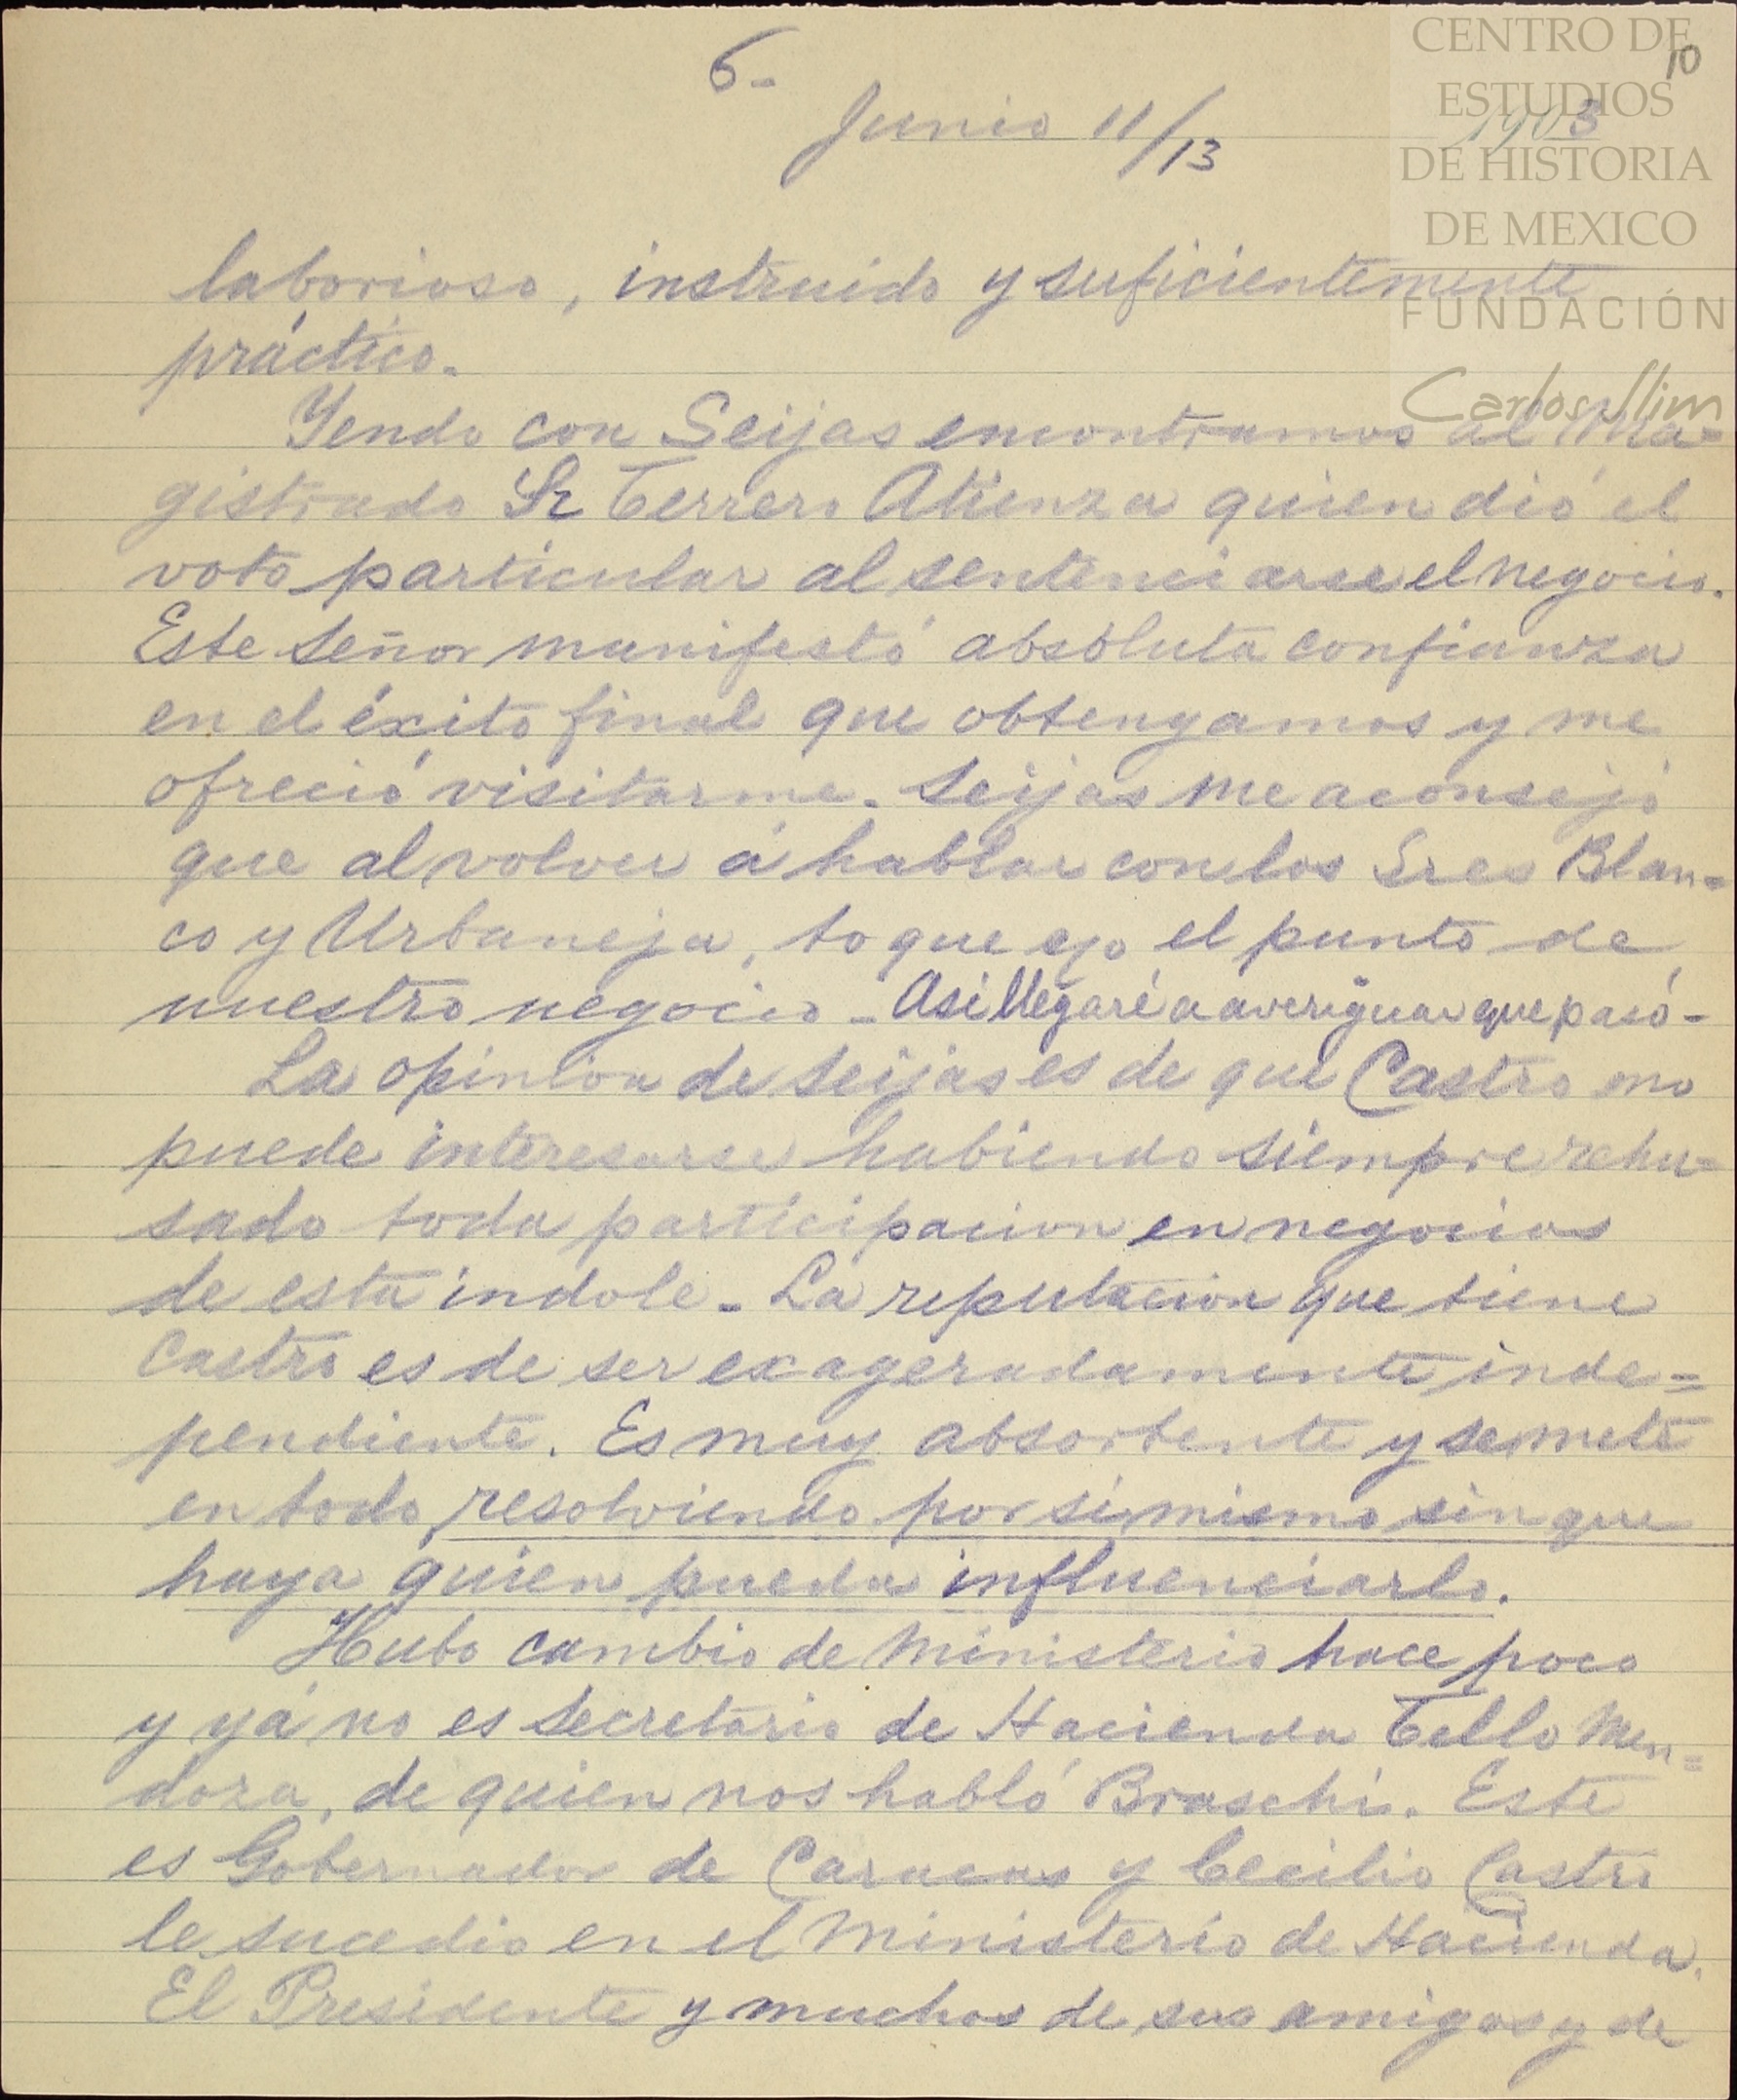 6-
10
Junio 11/13
1903
CENTRO DE
ESTUDIOS
DE HISTORIA
DE MEXICO
FUNDACIÓN
Carlos Slim
laborioso, instruido y suficientemente
práctico.
Yendo con Seijas encontramos al Ma=
gistrado Sr Terrero Atienza quien dió el
voto particular al sentenciarse el negocio.
Este Señor manifestó absoluta confianza
en el éxito final que obtengamos y me
ofreció visitarme. Seijas me aconsejó
que al volver á hablar con los Sres Blan=
co y Urbaneja, toque yo el punto de
nuestro negocio - Asi llegaré a averiguar que pasó -
La opinion de Seijas es de que Castro no
puede interesarse habiendo siempre rehu=
sado toda participacion en negocios
de esta indole - La reputacion que tiene
Castro es de ser exageradamente inde=
pendiente. Es muy absorbente y se mete
en todo resolviendo por si mismo sin que
haya quien pueda influenciarlo.
Hubo cambio de Ministerio hace poco
y yá no es Secretario de Hacienda Tello Men=
doza, de quien nos habló Braschi. Este
es Gobernador de Caracas y Cecilio Castro
le sucedio en el Ministerio de Hacienda.
El Presidente y muchos de sus amigos y de